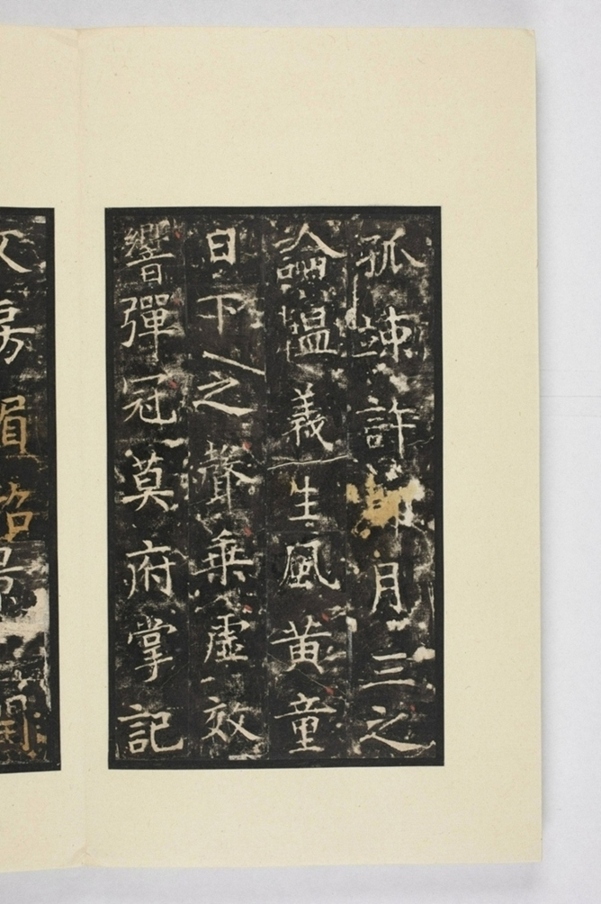 孤竦許月旦之
論韞義生風黃童
日下之聲乗虛效
響彈冠莫府掌記